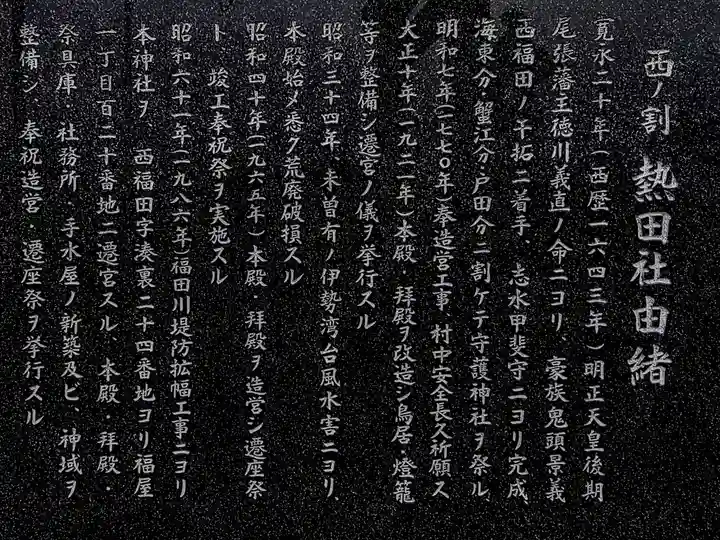 西ノ割 熱田社由緒
寛永二十年(西歴一六四三年)明正天皇後期
尾張藩王徳川義直ノ命ニヨリ、豪族鬼頭景義
西福田ノ干拓ニ着手、志水甲斐守ニヨリ完成、
海東分・蟹江分・戸田分ニ割ケテ守護神社ヲ祭ル、
明和七年(一七七〇年)奉造営工事、村中安全長久祈願ス
大正十年(一九二一年)本殿・拜殿ヲ改造シ鳥居・燈籠
等ヲ整備シ遷宮ノ儀ヲ挙行スル
昭和三十四年、未曽有ノ伊勢湾台風水害ニヨリ、
本殿始メ悉ク荒廃破損スル
昭和四十年(一九六五年)本殿・拜殿ヲ造営シ遷座祭
ト 竣工奉祝祭ヲ実施スル
昭和六十一年(一九八六年)福田川堤防拡幅工事ニヨリ
本神社ヲ、西福田字湊裏二十四番地ヨリ福屋
一丁目百二十番地ニ遷宮スル、本殿・拜殿・
祭具庫・社務所・手水屋ノ新築及ビ、神域ヲ
整備シ、奉祝造営・遷座祭ヲ挙行スル